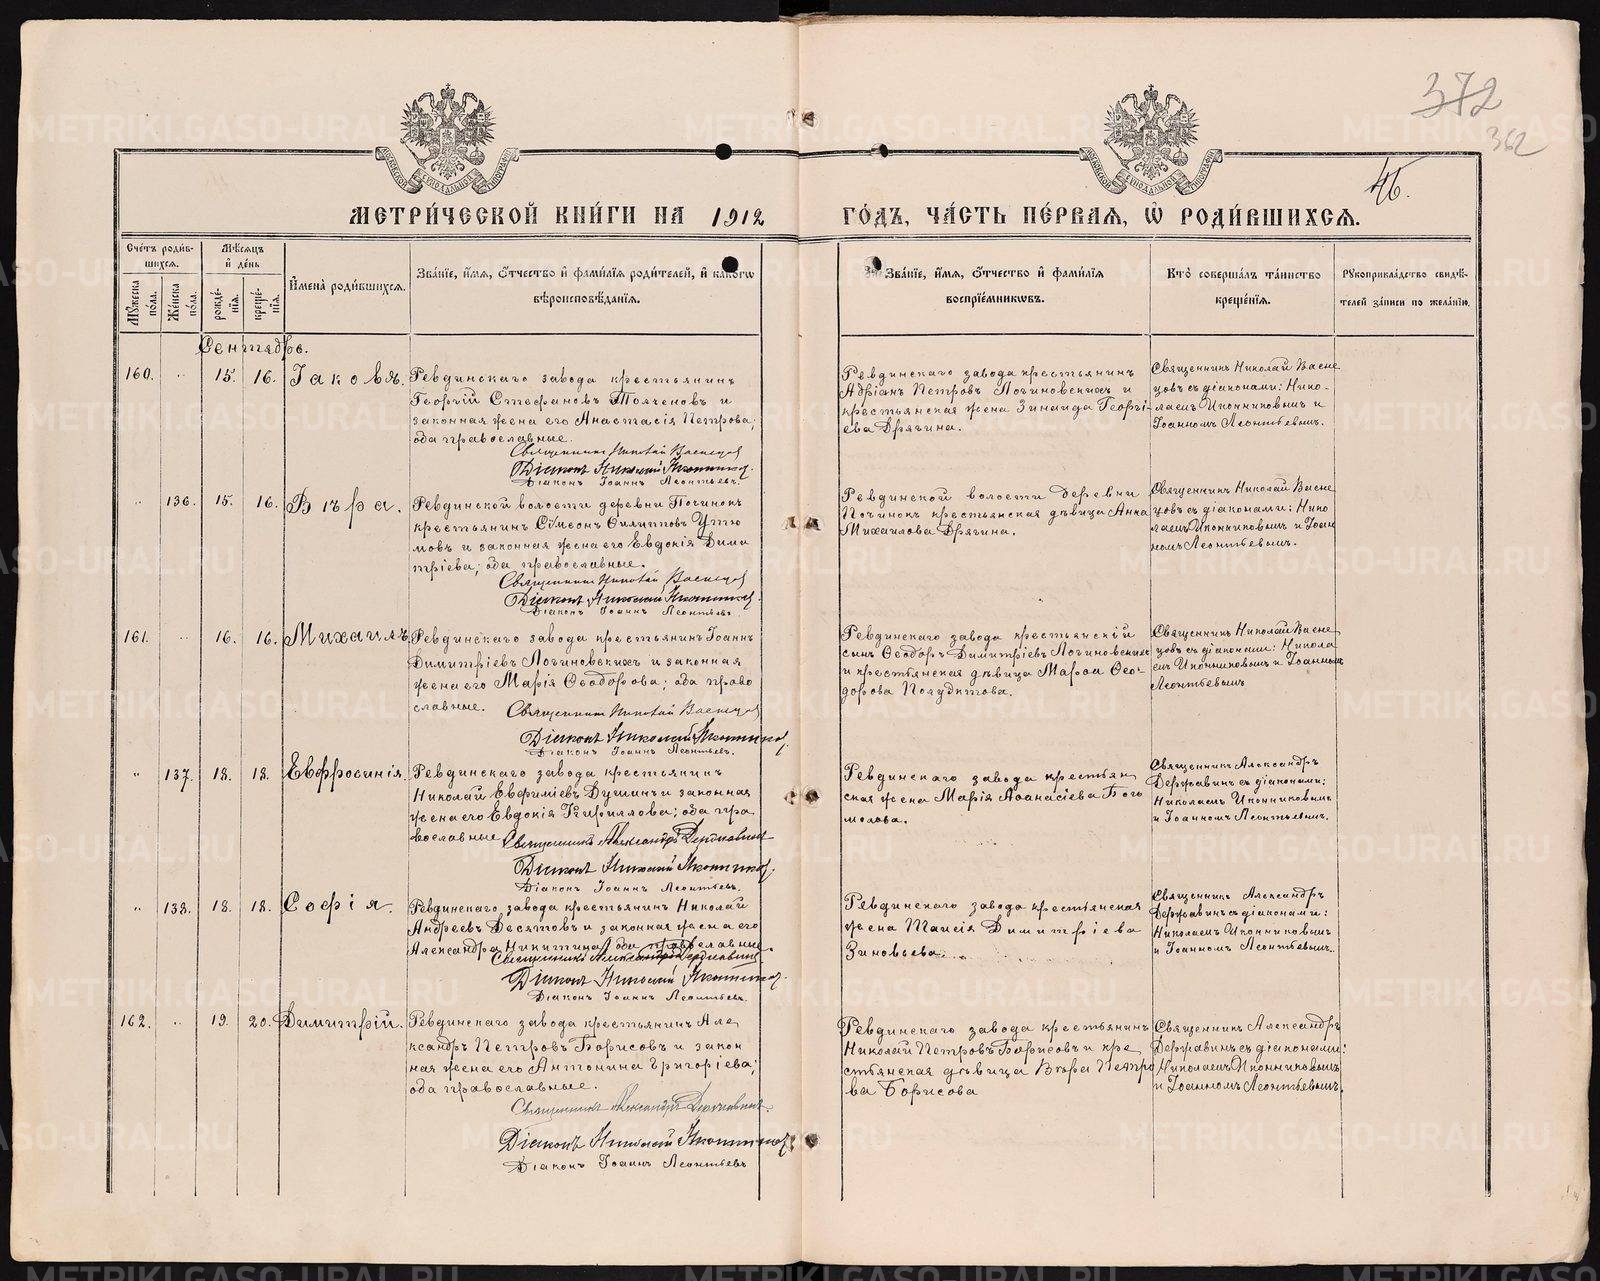 372
362
46.
МОСКОВСКОЙ СѴНОДАЛЬНОЙ ТИПОГРАФІИ
МОСКОВСКОЙ СѴНОДАЛЬНОЙ ТИПОГРАФІИ
МЕТРИ́ЧЕСКОЙ КНИ́ГИ НА 1912 ГО́ДЪ, ЧА́СТЬ ПЕ́РВАЯ, Ѽ РОДИ́ВШИХСЯ.
Сче́тъ роди́в-
шихся.
Мѣ́сяцъ
и҆ де́нь
Мꙋ́жеска
по́ла.
Же́нска
по́ла.
рожде́-
нія.
креще́-
нія.
И҆мена̀ роди́вшихся.
Зва́ніе, и҆́мя, ѻ҆́тчество и҆ фами́лія роди́телей, и҆ како́гѡ
вѣроисповѣ́данія.
Зва́ніе, и҆́мя, ѻ҆́тчество и҆ фами́лія
воспріе́мниковъ.
Кто̀ соверша́лъ та́инство
креще́нія.
Рꙋкоприкла́дство свидѣ́-
телей за́писи по жела́нію.
Сентябрь.
160. " 15. 16. Іаковъ.
Ревдинскаго завода крестьянинъ
Георгій Стефановъ Толченовъ и
законная жена его Анастасія Петрова;
оба православные.
Священникъ Николай Васнецов
Діаконъ Николай Иконников.
Діаконъ Іоаннъ Леонтьевъ.
Ревдинскаго завода крестьянинъ
Адріанъ Петровъ Логиновскихъ и
крестьянская жена Зинаида Георгі-
ева Дрягина.
Священникъ Николай Васне
цовъ съ діаконами: Нико-
лаемъ Иконниковымъ и
Іоанномъ Леонтьевымъ.
" 136. 15. 16. Вѣра.
Ревдинской волости деревни Починокъ
крестьянинъ Сѵмеонъ Филипповъ Утю
мовъ и законная жена его Евдокія Дими
тріева; оба православные.
Священникъ Николай Васнецов
Діаконъ Николай Иконников.
Діаконъ Іоаннъ Леонтьевъ.
Ревдинской волости деревни
Починокъ крестьянская дѣвица Анна
Михаилова Дрягина.
Священникъ Николай Васне
цовъ съ діаконами: Нико
лаемъ Иконниковымъ и Іоан
номъ Леонтьевымъ.
161. " 16. 16. Михаилъ.
Ревдинскаго завода крестьянинъ Іоаннъ
Димитріевъ Логиновскихъ и законная
жена его Марія Ѳеодорова; оба право
славные.
Священникъ Николай Васнецов
Діаконъ Николай Иконников.
Діаконъ Іоаннъ Леонтьевъ.
Ревдинскаго завода крестьянскій
сынъ Ѳеодоръ Димитріевъ Логиновскихъ
и крестьянская дѣвица Марѳа Ѳео-
дорова Полудитова.
Священникъ Николай Васне
цовъ съ діаконами: Никола
емъ Иконниковымъ и Іоанномъ
Леонтьевымъ
" 137. 18. 18. Евфросинія.
Ревдинскаго завода крестьянинъ
Николай Евфиміевъ Душинъ и законная
жена его Евдокія Кириллова; оба пра
вославные
Священникъ Александръ Державинъ
Діаконъ Николай Иконников.
Діаконъ Іоаннъ Леонтьевъ.
Ревдинскаго завода крестьян
ская жена Марія Аѳанасіева Бого
молова.
Священникъ Александръ
Державинъ съ діаконами:
Николаемъ Иконниковымъ
и Іоанномъ Леонтьевымъ.
" 138. 18. 18. Софія.
Ревдинскаго завода крестьянинъ Николай
Андреевъ Десятовъ и законная жена его
Александра Никитина; оба православные.
Священникъ Александръ Державинъ
Діаконъ Николай Иконников.
Діаконъ Іоаннъ Леонтьевъ.
Ревдинскаго завода крестьянская
жена Таисія Димитріева
Зиновьева.
Священникъ Александръ
Державинъ съ діаконами:
Николаемъ Иконниковымъ
и Іоанномъ Леонтьевымъ.
162. " 19. 20. Димитрій.
Ревдинскаго завода крестьянинъ Але
ксандръ Петровъ Борисовъ и закон
ная жена его Антонина Григоріева;
оба православные.
Священникъ Александръ Державинъ.
Діаконъ Николай Иконников
Діаконъ Іоаннъ Леонтьевъ
Ревдинскаго завода крестьянинъ
Николай Петровъ Борисовъ и кре
стьянская дѣвица Вѣра Петро
ва Борисова
Священникъ Александръ
Державинъ съ діаконами:
Николаемъ Иконниковымъ
и Іоанномъ Леонтьевымъ.
METRIKI.GASO-URAL.RU